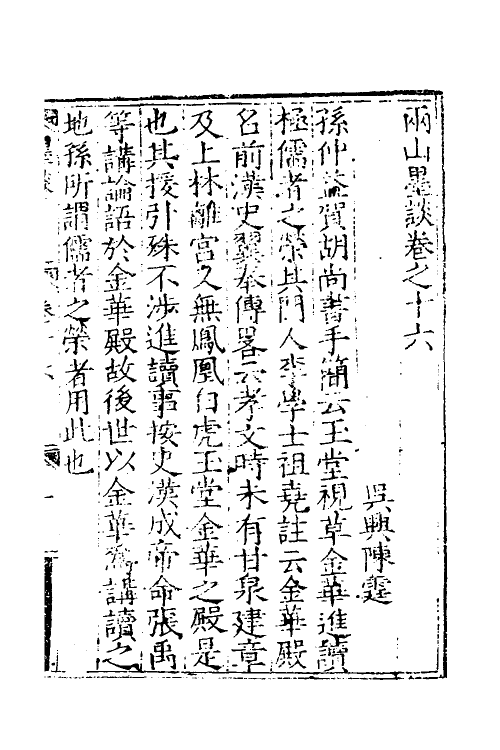 兩山墨談卷之十六
吳興陳霆
孫仲益賀胡尚書手簡云玉堂視草金華進讀
極儒者之榮其門人李學士祖堯註云金華殿
名前漢史翼奉傳畧云孝文時未有甘泉建章
及上林離宮又無鳳凰白虎玉堂金華之殿是
也其援引殊不涉進讀事按史漢成帝命張禹
等講論語於金華殿故後世以金華為講讀之
地孫所謂儒者之榮者用此也